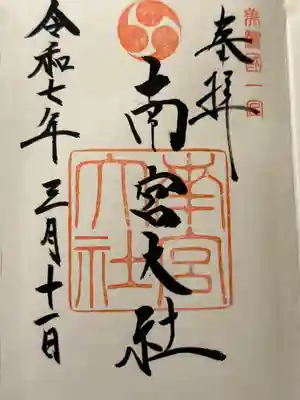 美濃國一宮
奉拝
南宮大社
南宮大社
令和七年三月十一日